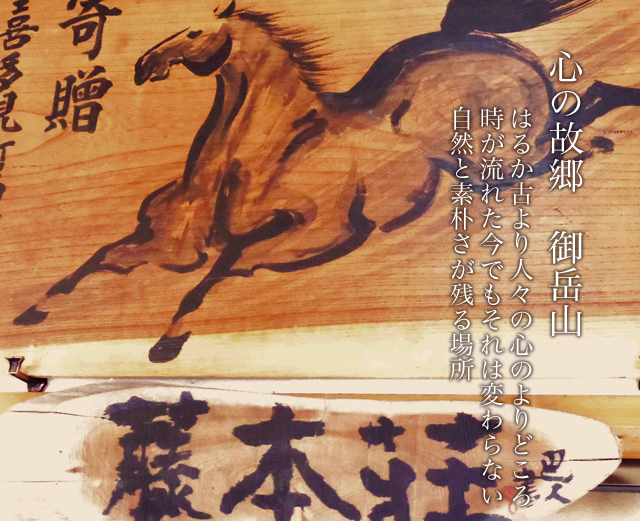 心の故郷　御岳山
はるか古より人々の心のよりどころ
時が流れた今でもそれは変わらない
自然と素朴さが残る場所
寄贈
喜多見
藤本荘